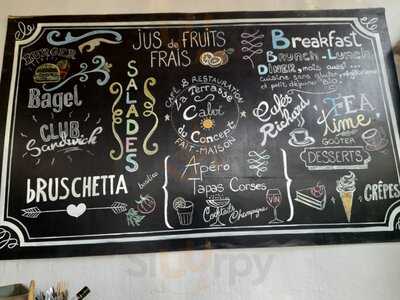 BURGER
Bagel
CLUB
Sandwich
bRUSCHETTA
SALADES
JUS de FRUITS
FRAIS
CAFE & RESTAURATION
La Terrasse
Calot
du Concept
FAIT-MAISON
Apéro
Tapas Corses
Cocktails
Champagne
VIN
Breakfast
Brunch-Lunch
DINER
cuisine sans gluten
et petit déjeuner
Cafés
Richard
TEA
time
GOÛTER
DESSERTS
CRÊPES